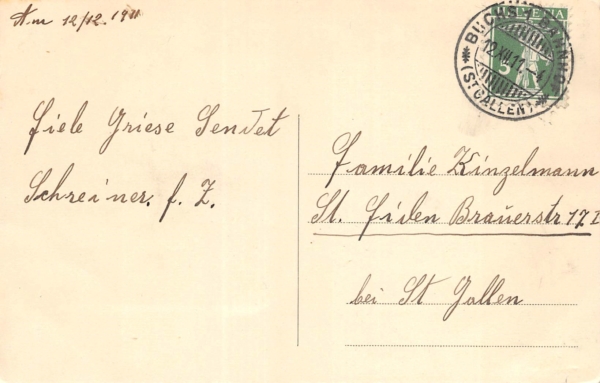 Am 12/12. 1911
HELVETIA
5
BUCHS 1. BAHNHOF
12.XII.11.-4
(ST GALLEN)
Fiele Griese Sendet
Schreiner. f. Z.
Familie Kinzelmann
St. Fiden Brauerstr 17 I
bei St Gallen